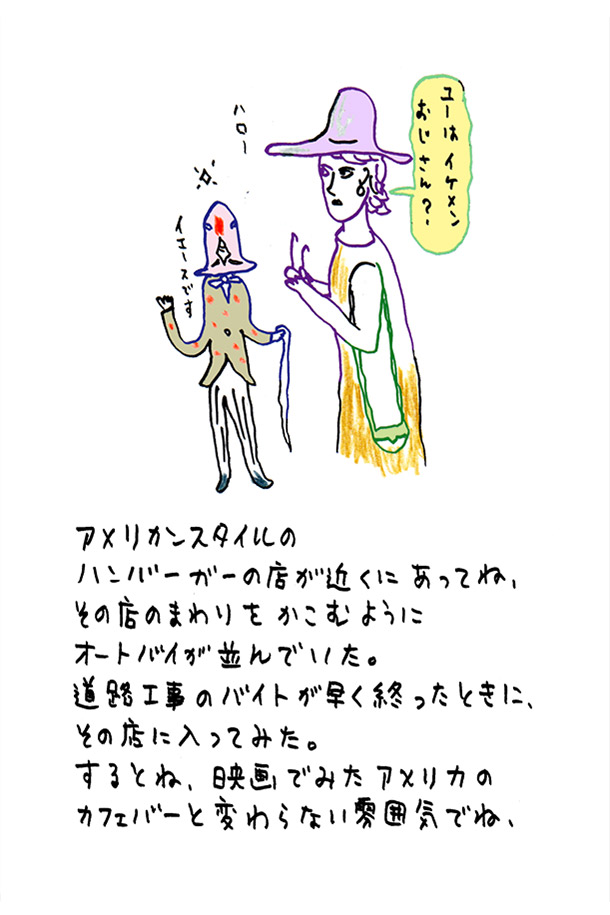 ユーは イケメン
おじさん?
ハロー
イエースです
アメリカンスタイルの
ハンバーガーの店が近くに あってね、
その店のまわりを かこむように
オートバイが並んでいた。
道路工事のバイトが早く終ったときに、
その店に入ってみた。
するとね、映画でみたアメリカの
カフェバーと変わらない雰囲気でね、